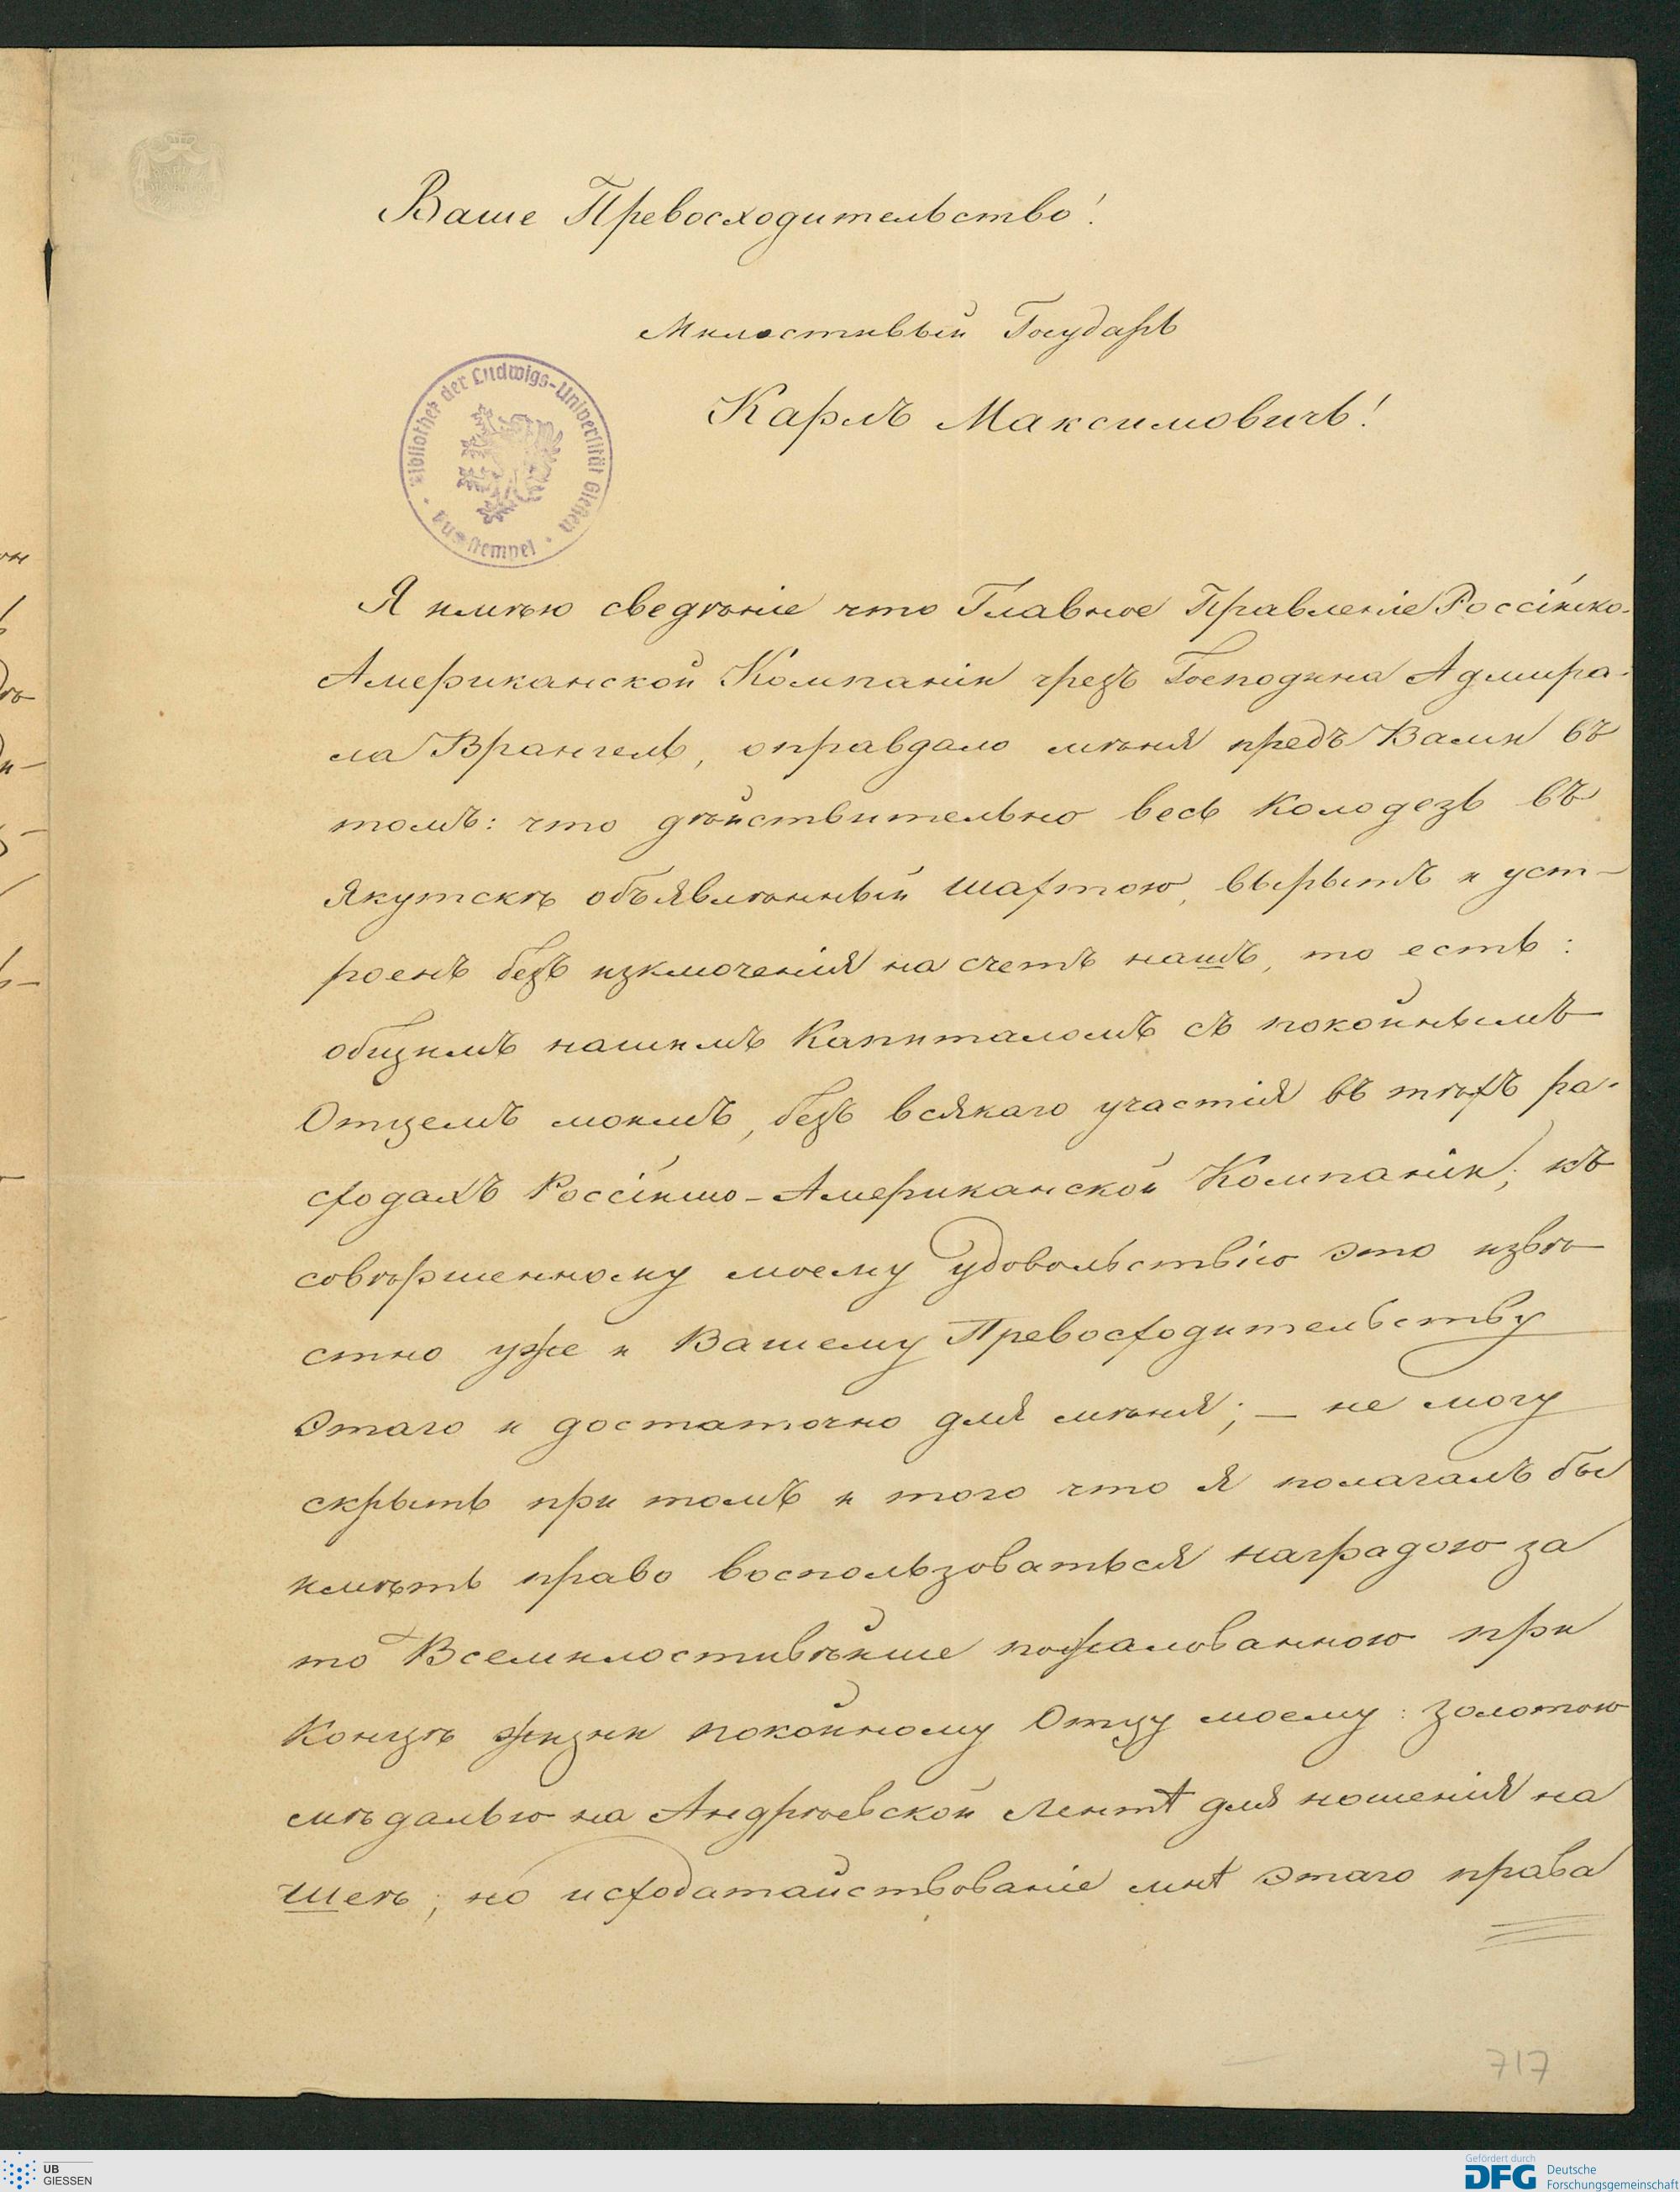 Ваше Превосходительство!
Милостивый Государь
Карлъ Максимовичь!
Bibliothek der Ludwigs-Universität Giessen
Я имѣю сведѣніе что Главное Правленіе Россійско-
Американской Компаніи чрезъ Господина Адмира-
ла Врангель, оправдало мѣня предъ Вами въ
томъ: что дѣйствительно весь Колодезь въ
Якутскѣ объявлѣнный шафтою, вырытъ и уст-
роенъ безъ изключенія на счетъ нашъ, то есть:
общимъ нашимъ Капиталомъ съ покойнымъ
Отцемъ моимъ, безъ всякаго участія въ тѣхъ ра-
сходахъ Россійшо-Американской Компаніи; къ
совѣршенному моему удовольствію это извѣ-
стно уже и Вашему Превосходительству
Этаго и достаточно для мѣня; — не могу
скрыть при томъ и того что я полагалъ бы
имѣть право воспользоваться наградою за
то Всемилостивѣйше пожалованною при
Концѣ жизни покойному Отцу моему: золотою
мѣдалью на Андрѣевской Лентѣ для ношенія на
шеѣ; но исходатайствованіе мнѣ этаго права
717
UB
GIESSEN
Gefördert durch
DFG Deutsche
Forschungsgemeinschaft